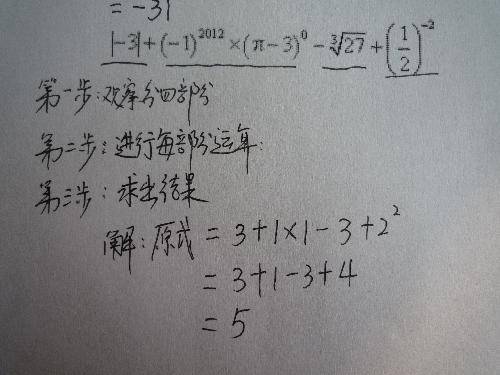 = -31
|-3|+(-1)^2012×(π-3)^0-∛27+(1/2)^-2
第一步:观察分四部份
第二步:进行每部份运算:
第三步:求出结果
解:原式 = 3+1×1-3+2^2
= 3+1-3+4
= 5